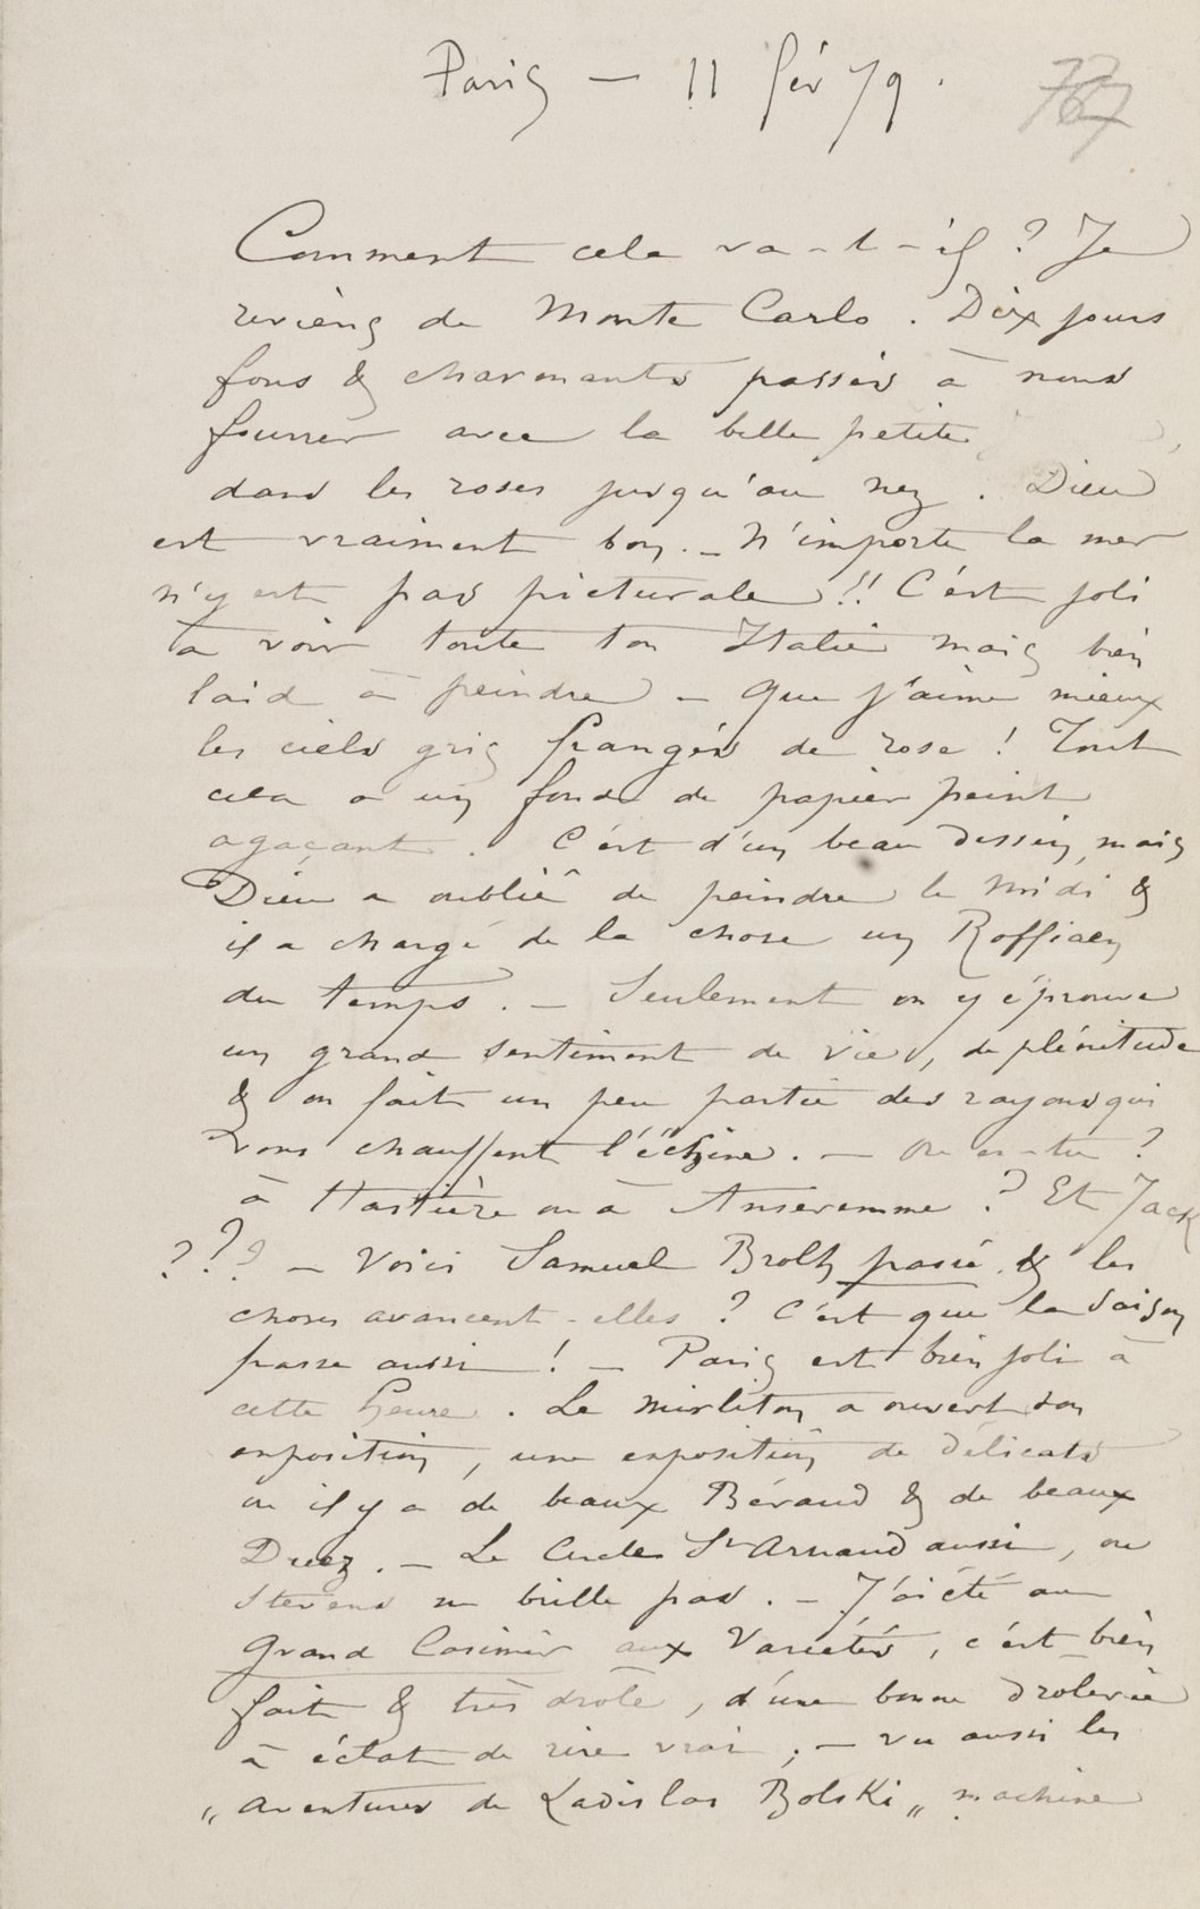 Paris — 11 fév 79.
Comment cela va-t-il ? Je
reviens de Monte Carlo. Dix jours
fous & charmants passés à nous
fourrer avec la belle petite
dans les roses jusqu'au nez. Dieu
est vraiment bon. – N'importe la mer
n'y est pas picturale !! C'est joli
à voir toute ton Italie mais bien
laid à peindre – Que j'aime mieux
les ciels gris frangés de rose ! Tout
cela a un fond de papier peint
agaçant. C'est d'un beau dessin, mais
Dieu a oublié de peindre le midi &
il a chargé de la chose un Roffiaen
du temps. – Seulement on y éprouve
un grand sentiment de vie, de plénitude
& on fait un peu partie des rayons qui
vous chauffent l'échine. — Où es-tu ?
à Hastière ou à Anseremme ? Et Jack
??? – Voici Samuel Brohl passé & les
choses avancent-elles ? C'est que la saison
passe aussi ! – Paris est bien joli à
cette heure. Le Mirliton a ouvert son
exposition, une exposition de délicats
où il y a de beaux Béraud & de beaux
Duez. – Le Cercle St Arnaud aussi, où
Stevens ne brille pas. – J'ai été au
Grand Casimir aux Variétés, c'est bien
fait & très drôle, d'une bonne drôlerie
à éclat de rire vrai ; – vu aussi les
„Aventures de Ladislas Bolski„ machine